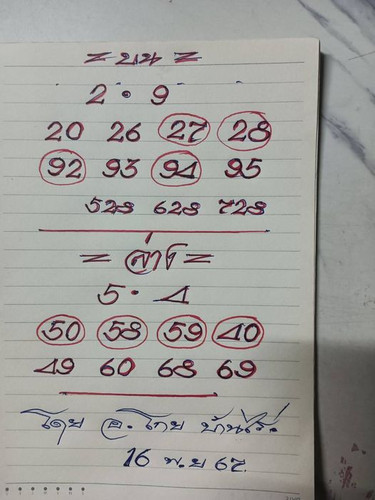 = บน =
2 • 9
20 26 27 28
92 93 94 95
528 628 728
= ล่าง =
5 • 4
50 58 59 40
49 60 68 69
โดย อ. โทย บ้านไร่.
16 พ.ย 67.